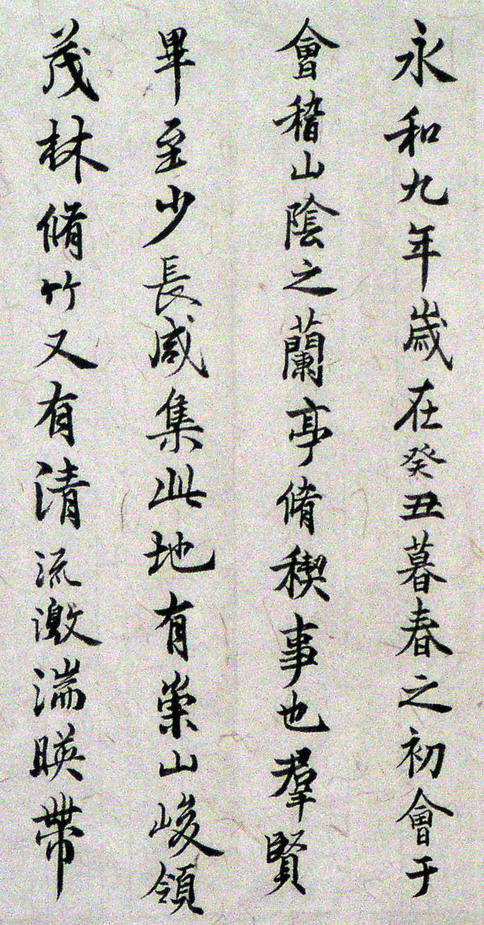 永和九年歲在癸丑暮春之初會于
會稽山陰之蘭亭脩稧事也羣賢
畢至少長咸集此地有崇山峻領
茂林脩竹又有清流激湍暎帶